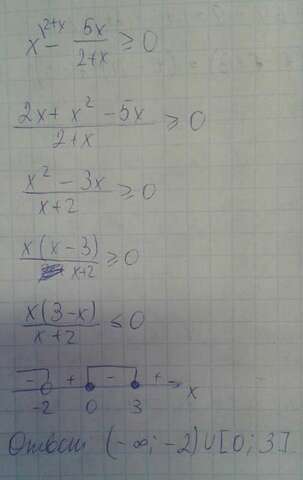 x^{2+x} - 5x/(2+x) ≥ 0
(2x + x² - 5x)/(2+x) ≥ 0
(x² - 3x)/(x+2) ≥ 0
x(x-3)/(x+2) ≥ 0
x(3-x)/(x+2) ≤ 0
- + - + x
-2 0 3
Ответ: (-∞; -2) ∪ [0; 3]